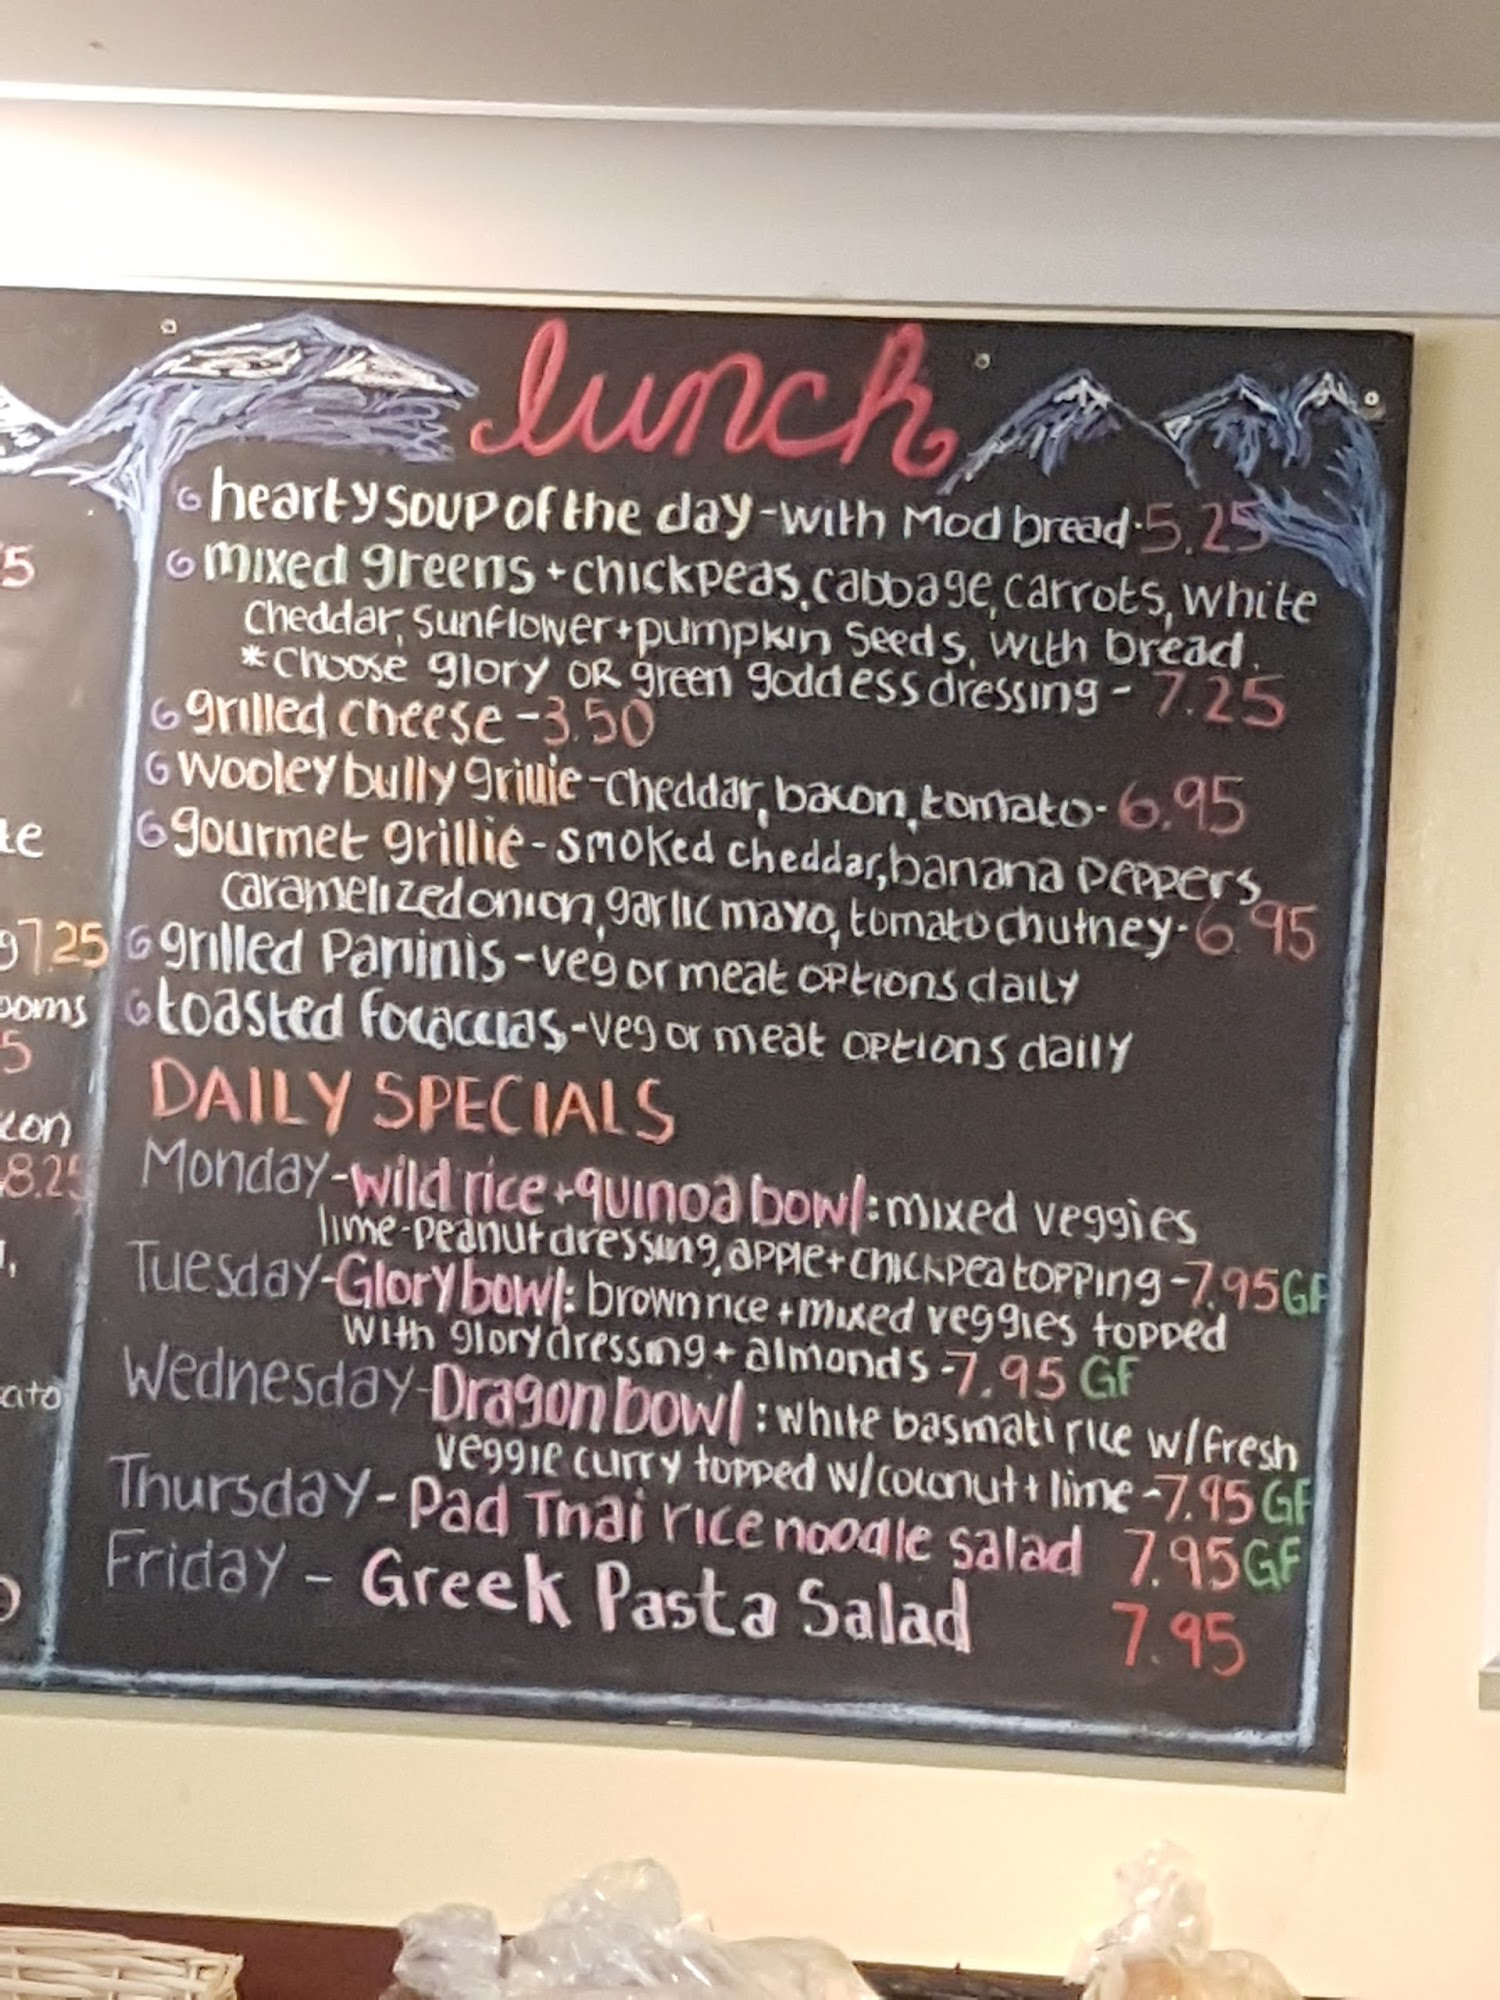 lunch
hearty soup of the day - with Mod bread - 5.25
mixed greens + chickpeas, cabbage, carrots, white
cheddar, sunflower + pumpkin seeds, with bread.
*choose glory OR green goddess dressing - 7.25
grilled cheese - 3.50
wooley bully grillie - cheddar, bacon, tomato - 6.95
gourmet grillie - smoked cheddar, banana peppers,
caramelized onion, garlic mayo, tomato chutney - 6.95
grilled Paninis - veg or meat options daily
toasted focaccias - veg or meat options daily
DAILY SPECIALS
Monday - wild rice + quinoa bowl: mixed veggies
lime-peanut dressing, apple + chickpea topping - 7.95 GF
Tuesday - Glory bowl: brown rice + mixed veggies topped
with glory dressing + almonds - 7.95 GF
Wednesday - Dragon bowl: white basmati rice w/ fresh
veggie curry topped w/ coconut + lime - 7.95 GF
Thursday - Pad Thai rice noodle salad 7.95 GF
Friday - Greek Pasta Salad 7.95
7.25
8.25